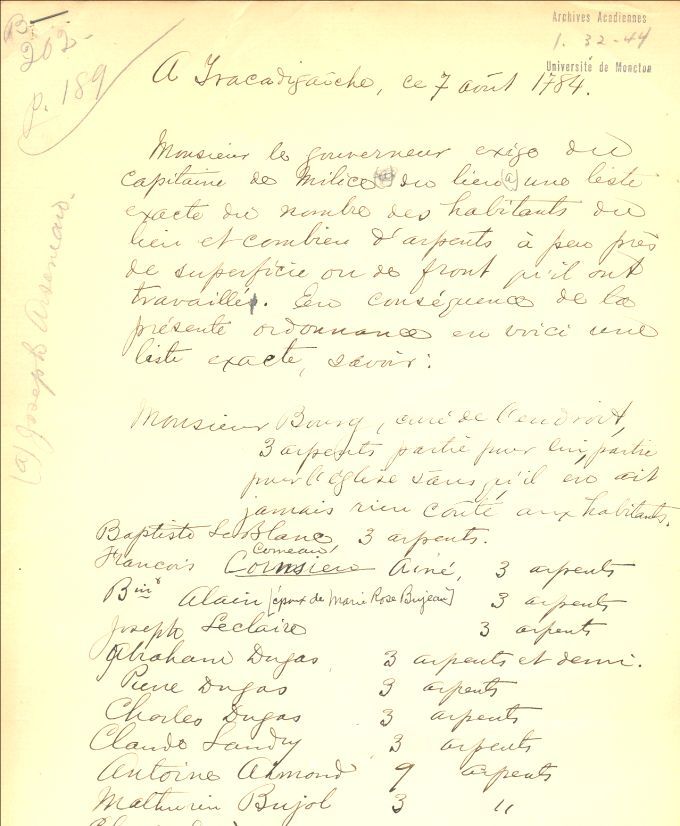 B-
202-
p. 189
Archives Acadiennes
1. 32-44
Université de Moncton
A Tracadigaîche, ce 7 août 1784.
Monsieur le gouverneur exige du
capitaine de Milice du lieu (a) une liste
exacte du nombre des habitants du
lieu et combien d'arpents à peu près
de superficie ou de front qu'il ont
travaillé. En conséquence de la
présente ordonnance en voici une
liste exacte, savoir:
(a) Joseph Arseneau.
Monsieur Bourg, curé de l'endroit,
3 arpents partie pour lui, partie
pour l'église sans qu'il en ait
jamais rien coûté aux habitants.
Baptiste LeBlanc 3 arpents.
Comeau
François Cormier Ainé, 3 arpents
Bin Alain [époux de Marie Rose Bujeau] 3 arpents
Joseph Leclaire 3 arpents
Abraham Dugas 3 arpents et demi.
Pierre Dugas 3 arpents
Charles Dugas 3 arpents
Claude Landry 3 arpents
Antoine Aimond 9 arpents
Mathurin Bujol 3 "